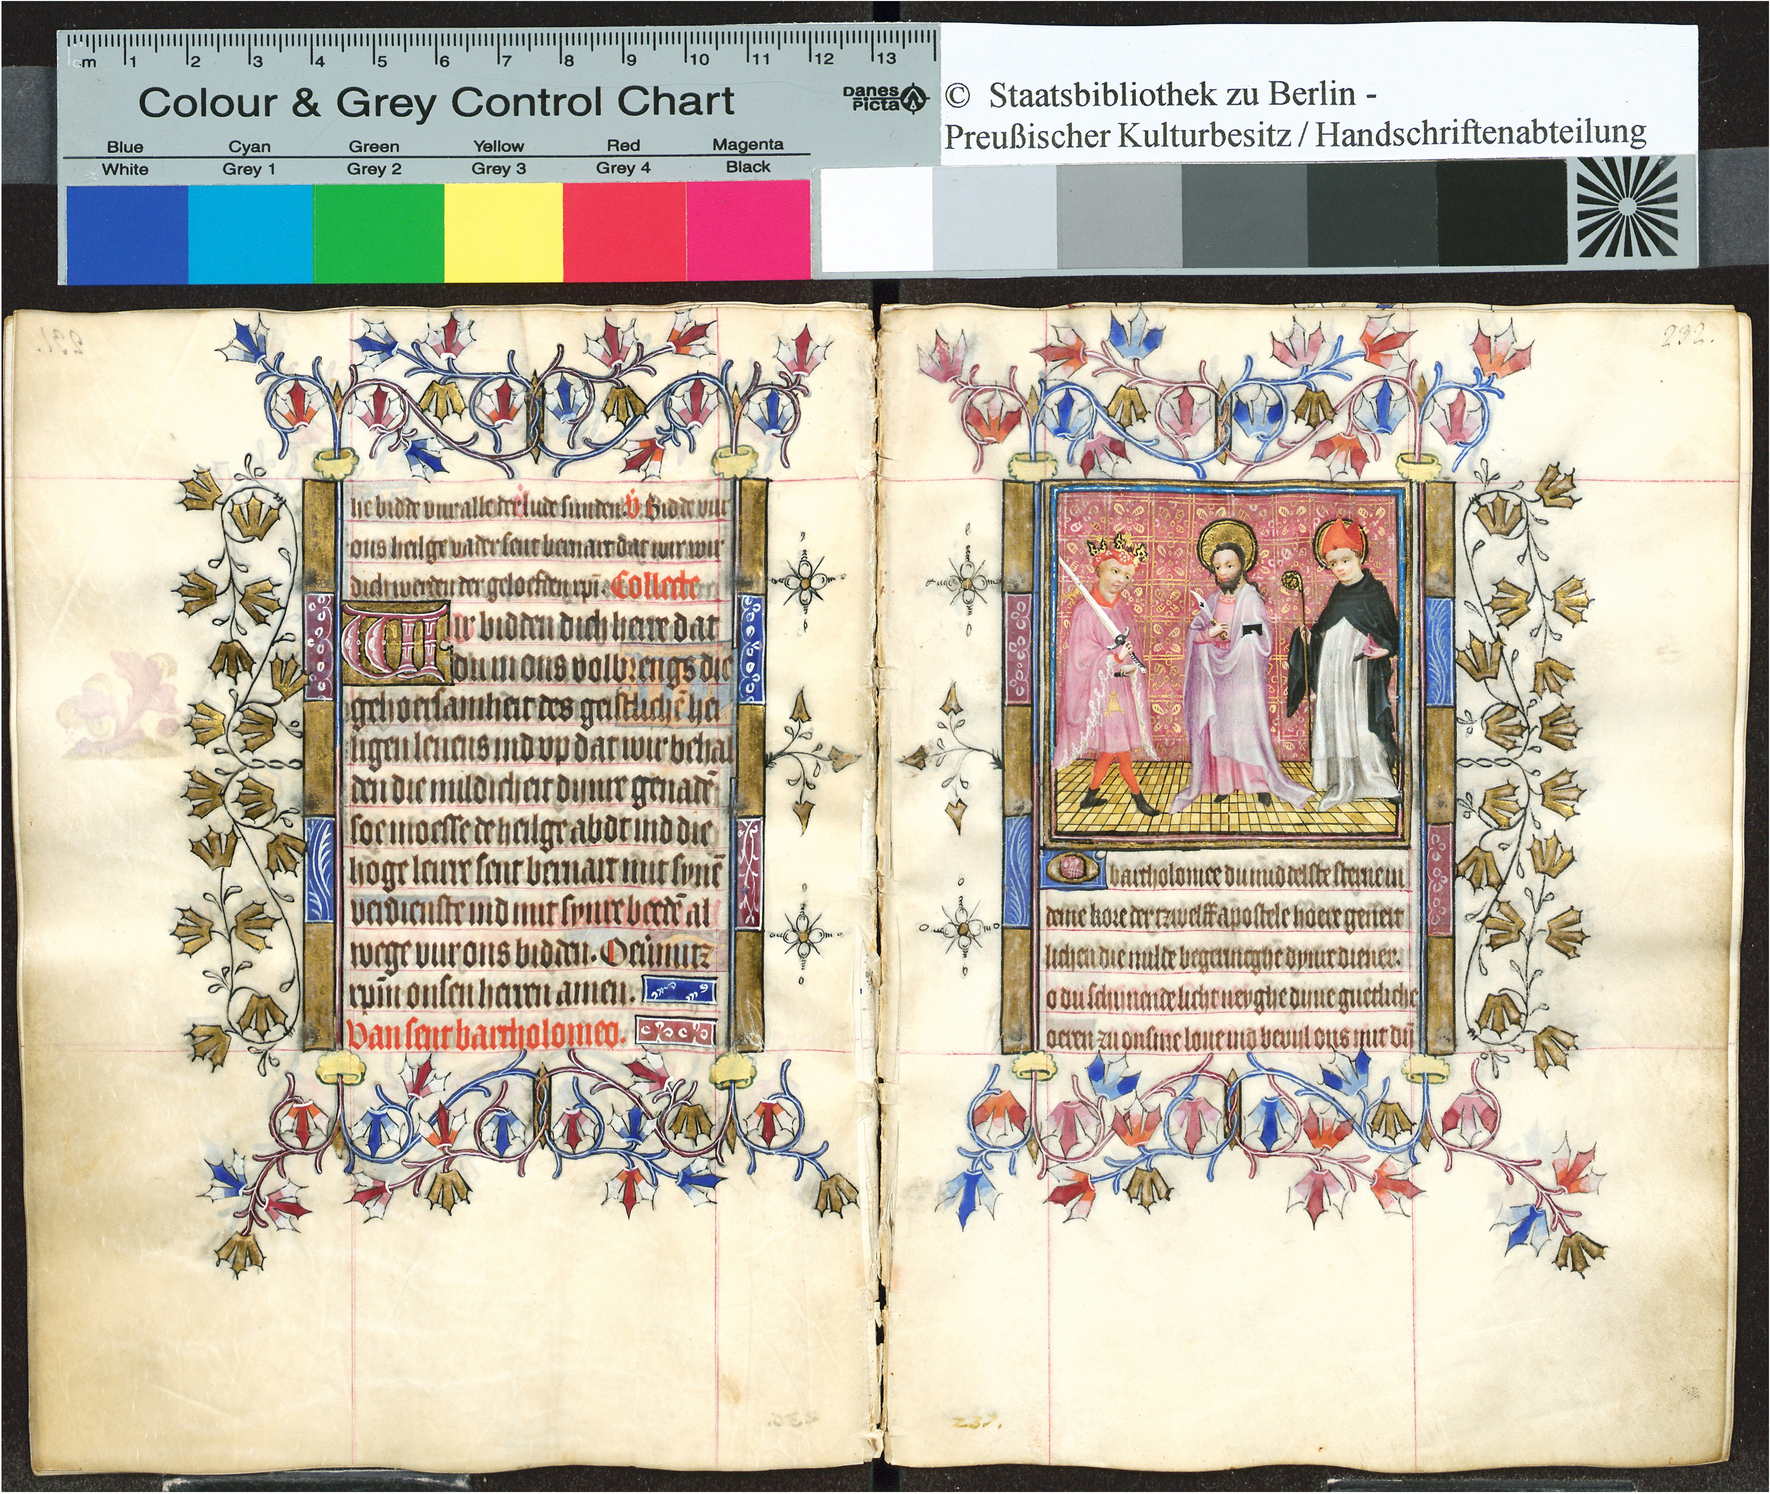 cm 1 2 3 4 5 6 7 8 9 10 11 12 13
Colour & Grey Control Chart
DANES PICTA
Blue Cyan Green Yellow Red Magenta
White Grey 1 Grey 2 Grey 3 Grey 4 Black
© Staatsbibliothek zu Berlin -
Preußischer Kulturbesitz / Handschriftenabteilung
231.
lie bidde vur alle der lude sunden. V. Bidde vur
ons heilge vader sent bernart dat wir wir
dich werden der geloefften xpi. Collecte
Wir bidden dich herre dat
du in ons volbrengs die
gehoersamheit des geistlichē hei
ligen leuens ind vp dat wir behal
den die mildicheit dynre genadē
soe moesse de heilge abdt ind die
hoge leurre sent bernart mit synē
verdienste ind mit synre beedē al
wege vur ons bidden. Ouermitz
xpm onsen herren amen.
Van sent bartholomeo.
232.
O bartholomee du mid delste sterne in
deme kore der tzwelff apostele hoere geneit
lichen die milde begeringhe dynre diener.
o du schinende licht neyghe dyne guetliche
oeren zu onsme loue ind beuil ons mit dyn
237.